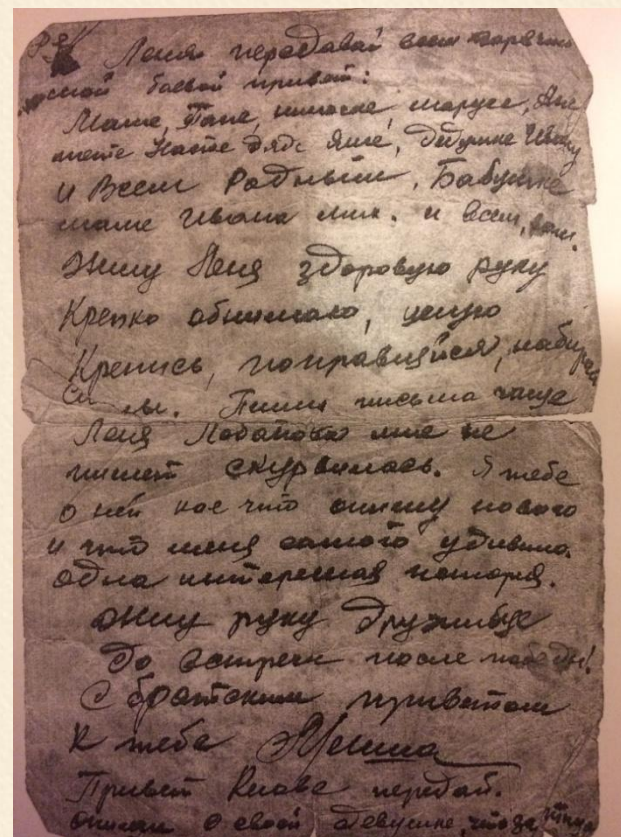 P.S.
Леня передавай всем
боевой привет:
Маме, Папе, Марусе, Ане
тете Насте Дяде Яше, Дедушке Ивану
и Всем Родным, Бабушке
маме Ивана и всем,
Жму Леня здоровую руку
Крепко обнимаю, целую
Крепись, поправляйся, набирай
Силы. Пиши письма чаще
Леня Лобанова мне не
пишет скурвилась. Я тебе
о ней кое что опишу нового
и что меня самого удивило.
одна интересная история.
Жму руку Дружище
До встречи после победы!
С братским приветом
к тебе
Привет Клаве передай.
о своей девушке, что за